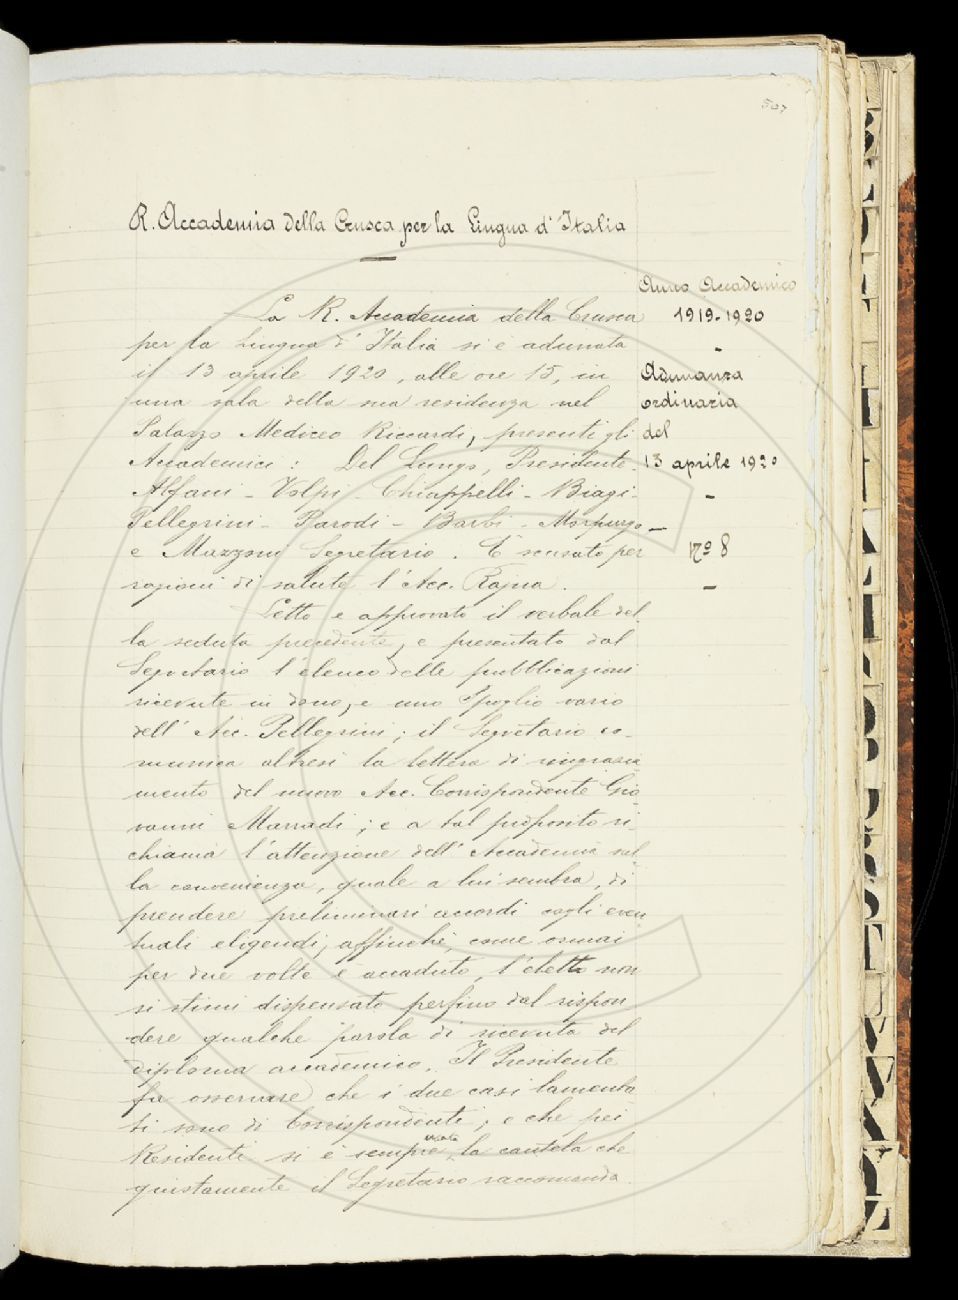 507
R. Accademia della Crusca per la Lingua d'Italia
Anno Accademico
1919-1920
Adunanza
ordinaria
del
13 aprile 1920
Nº 8
La R. Accademia della Crusca
per la Lingua d'Italia si è adunata
il 13 aprile 1920, alle ore 15, in
una sala della sua residenza nel
Palazzo Mediceo Riccardi, presenti gli
Accademici: Del Lungo, Presidente -
Alfani - Volpi - Chiappelli - Biagi -
Pellegrini - Parodi - Barbi - Morpurgo -
e Mazzoni Segretario. È scusato per
ragioni di salute l'Acc. Rajna.
Letto e approvato il verbale del
la seduta precedente, e presentato dal
Segretario l'elenco delle pubblicazioni
ricevute in dono, e uno Spoglio vario
dell'Acc. Pellegrini; il Segretario co-
munica altresì la lettera di ringrazia
mento del nuovo Acc. Corrispondente Gio
vanni Marradi; e a tal proposito ri
chiama l'attenzione dell'Accademia sul
la convenienza, quale a lui sembra, di
prendere preliminari accordi cogli even
tuali eligendi, affinché, come ormai
per due volte è accaduto, l'eletto non
si stimi dispensato perfino dal rispon
dere qualche parola di ricevuta del
diploma accademico. Il Presidente
fa osservare che i due casi lamenta
ti sono di Corrispondenti; e che pei
Residenti si è sempre usata la cautela che
giustamente il Segretario raccomanda.